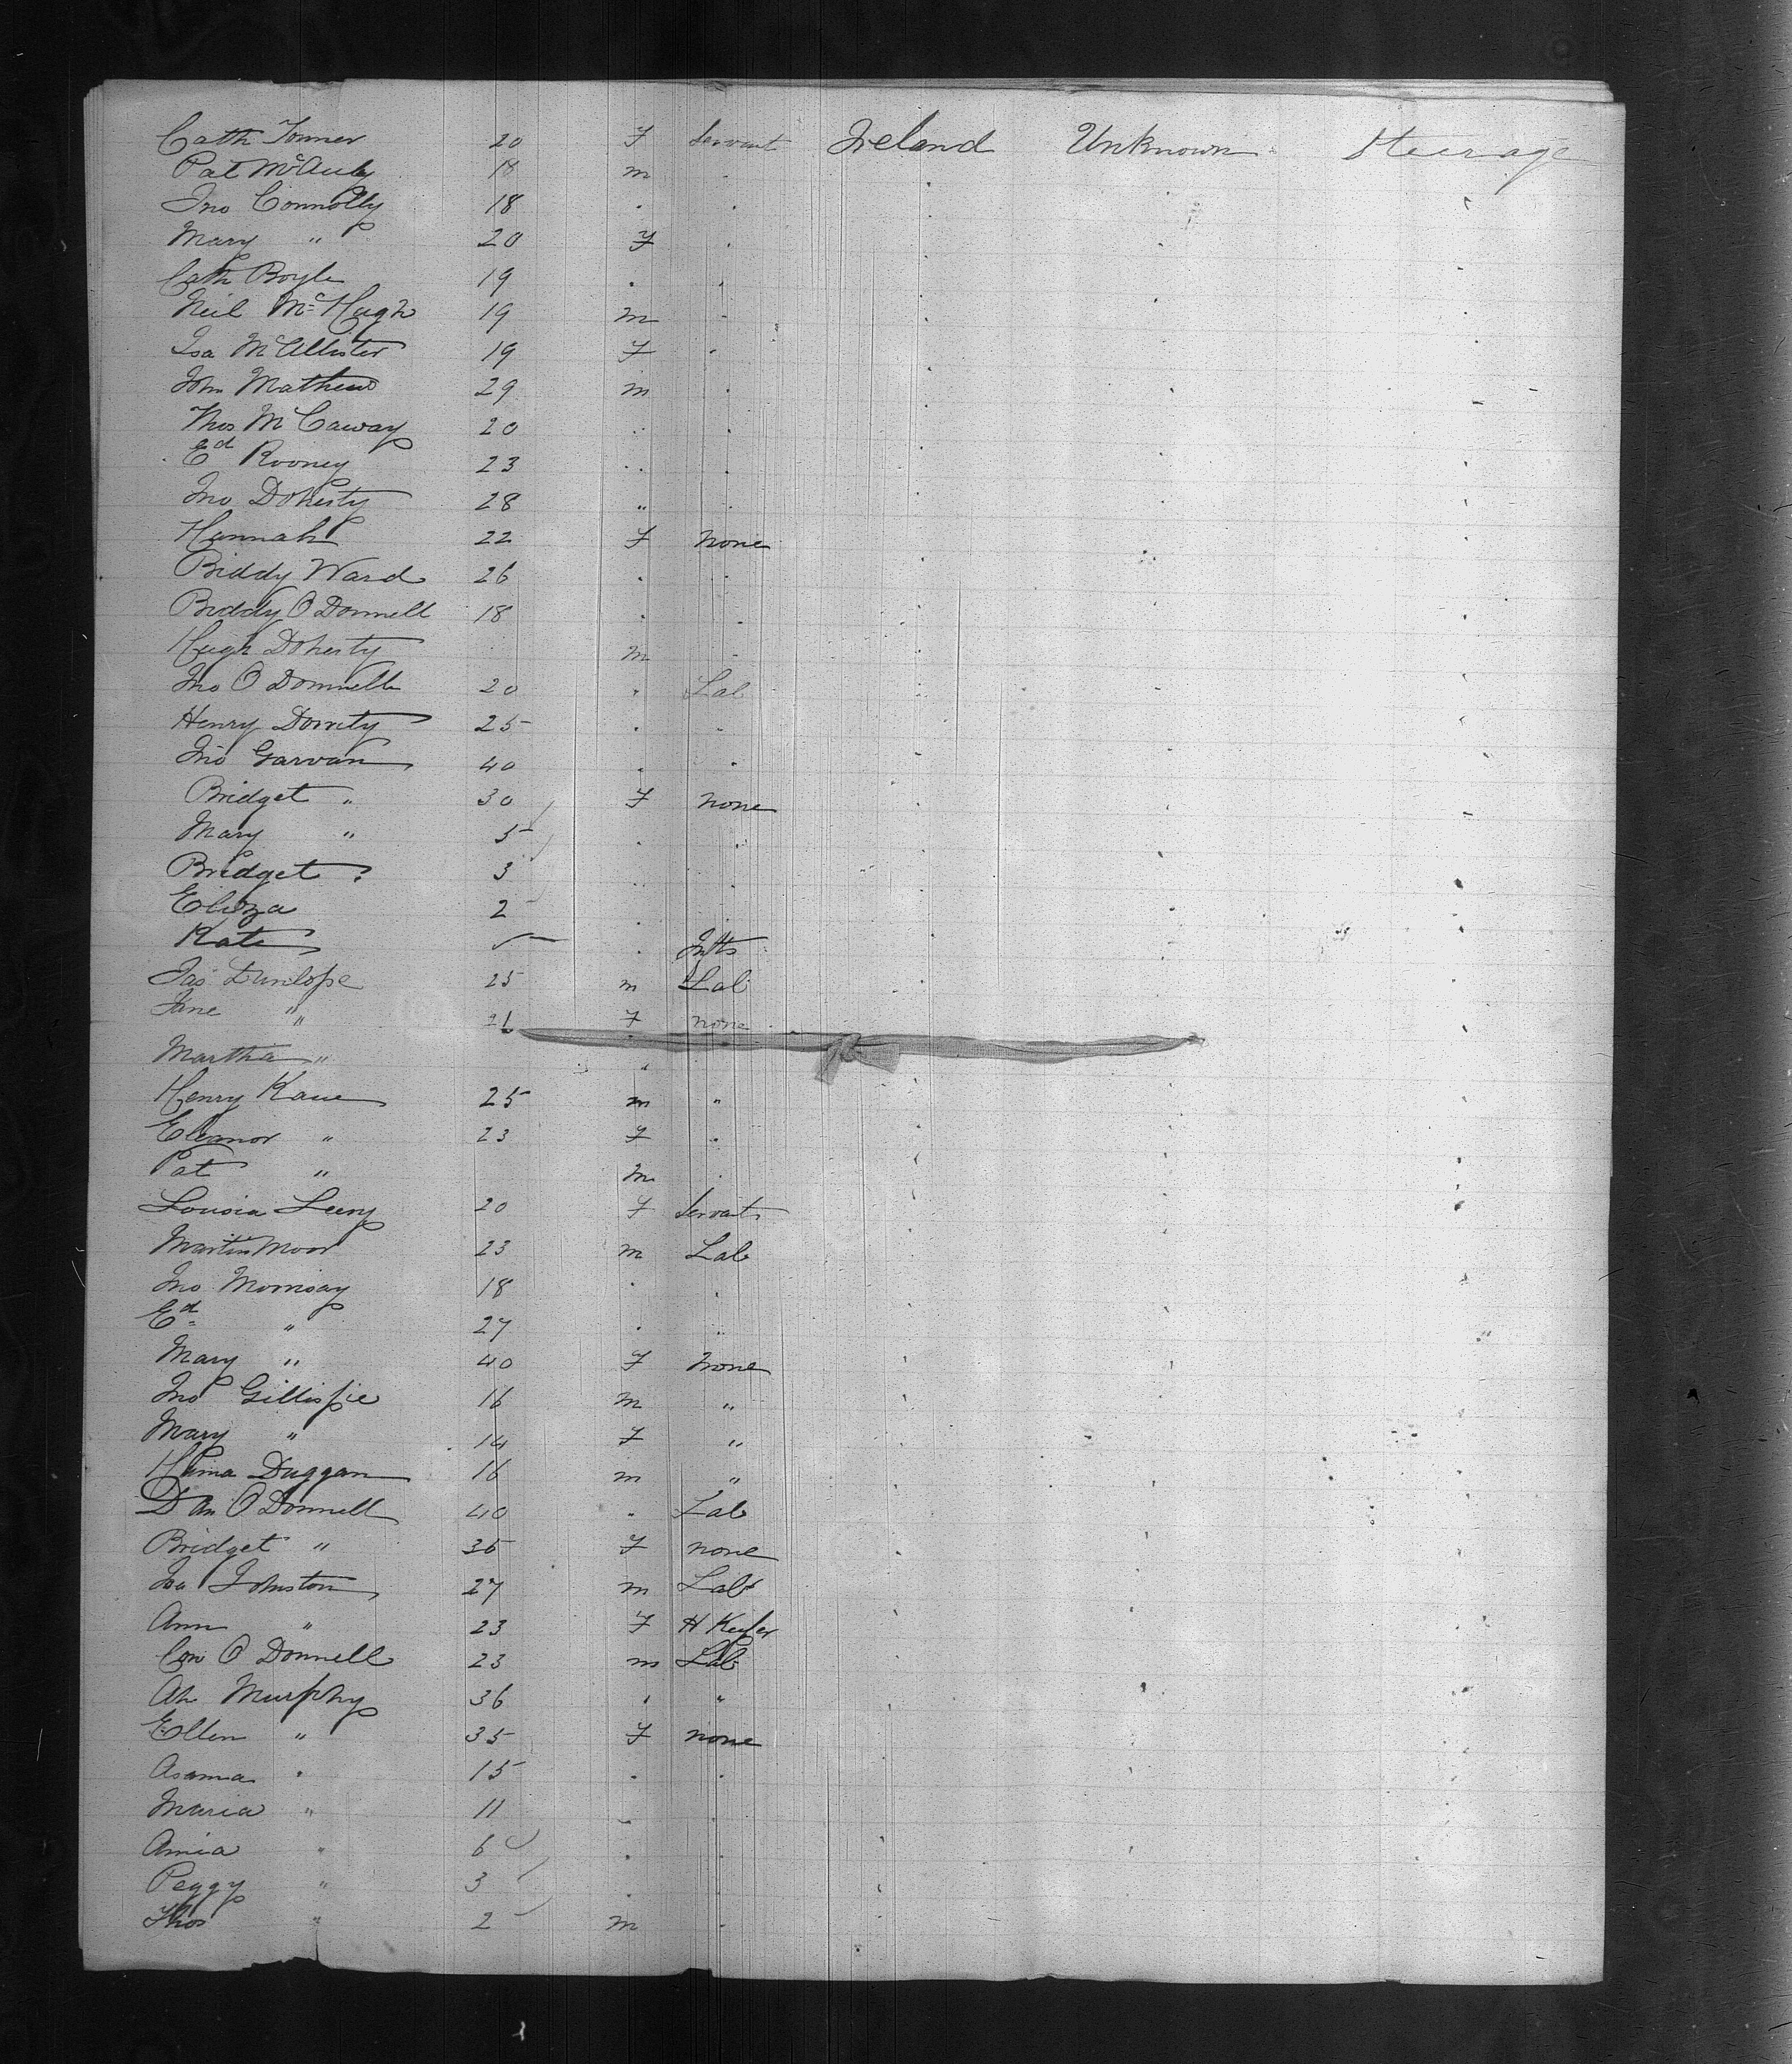 Cath Tonner 20 F Servant Ireland Unknown Steerage
Pat McAuly 18 m
Jno Connolly 18 .
Mary " 20 F .
Cath Boyle 19 . .
Neil McHugh 19 m .
Isa McAllister 19 F .
John Mathews 29 m .
Thos McCaway 20 " .
Ed Rooney 23 " .
Jno Doherty 28 " .
Hannah 22 F none
Biddy Ward 26 . .
Biddy O Donnell 18 . .
Hugh Doherty m .
Jno O Donnell 20 . Lab
Henry 25 . .
Jno Garvan 40 . .
Bridget " 30 F none
Mary " 5 . "
Bridget 3 " .
Eliza 2 . .
Kate . Infts
Jas Dunlope 25 m Lab
Jane " 21 F none
Martha " .
Henry Kane 25 m "
Eleanor " 23 F .
Pat " m .
Lousia Leery 20 F Servants
Martin Moor 23 m Lab
Jno 18 . .
Ed " 27 . "
Mary " 40 F none
Jno Gillispie 16 m "
Mary " 14 F "
Duggan 16 m "
Dan O Donnell 40 . Lab
Bridget " 35 F none
Johnston 27 m Lab
Ann " 23 F H Keeper
Con O Donnell 23 m Lab
Murphy 36 . "
Ellen " 35 F none
Asama " 15 . .
Maria " 11 . .
Amia " 6 . .
Peggy " 3 . .
Thos " 2 m .